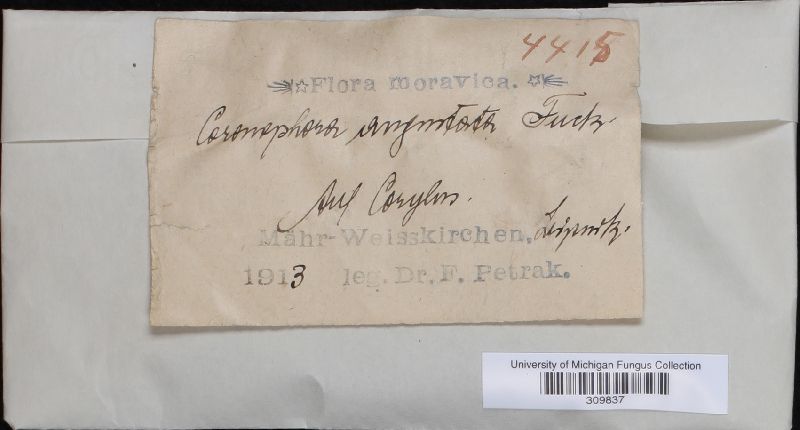 4415
Flora moravica.
Coronophora angustata Fuck.
Auf Corylus.
Mähr-Weisskirchen, Leipnik.
1913 leg. Dr. F. Petrak.
University of Michigan Fungus Collection
309837